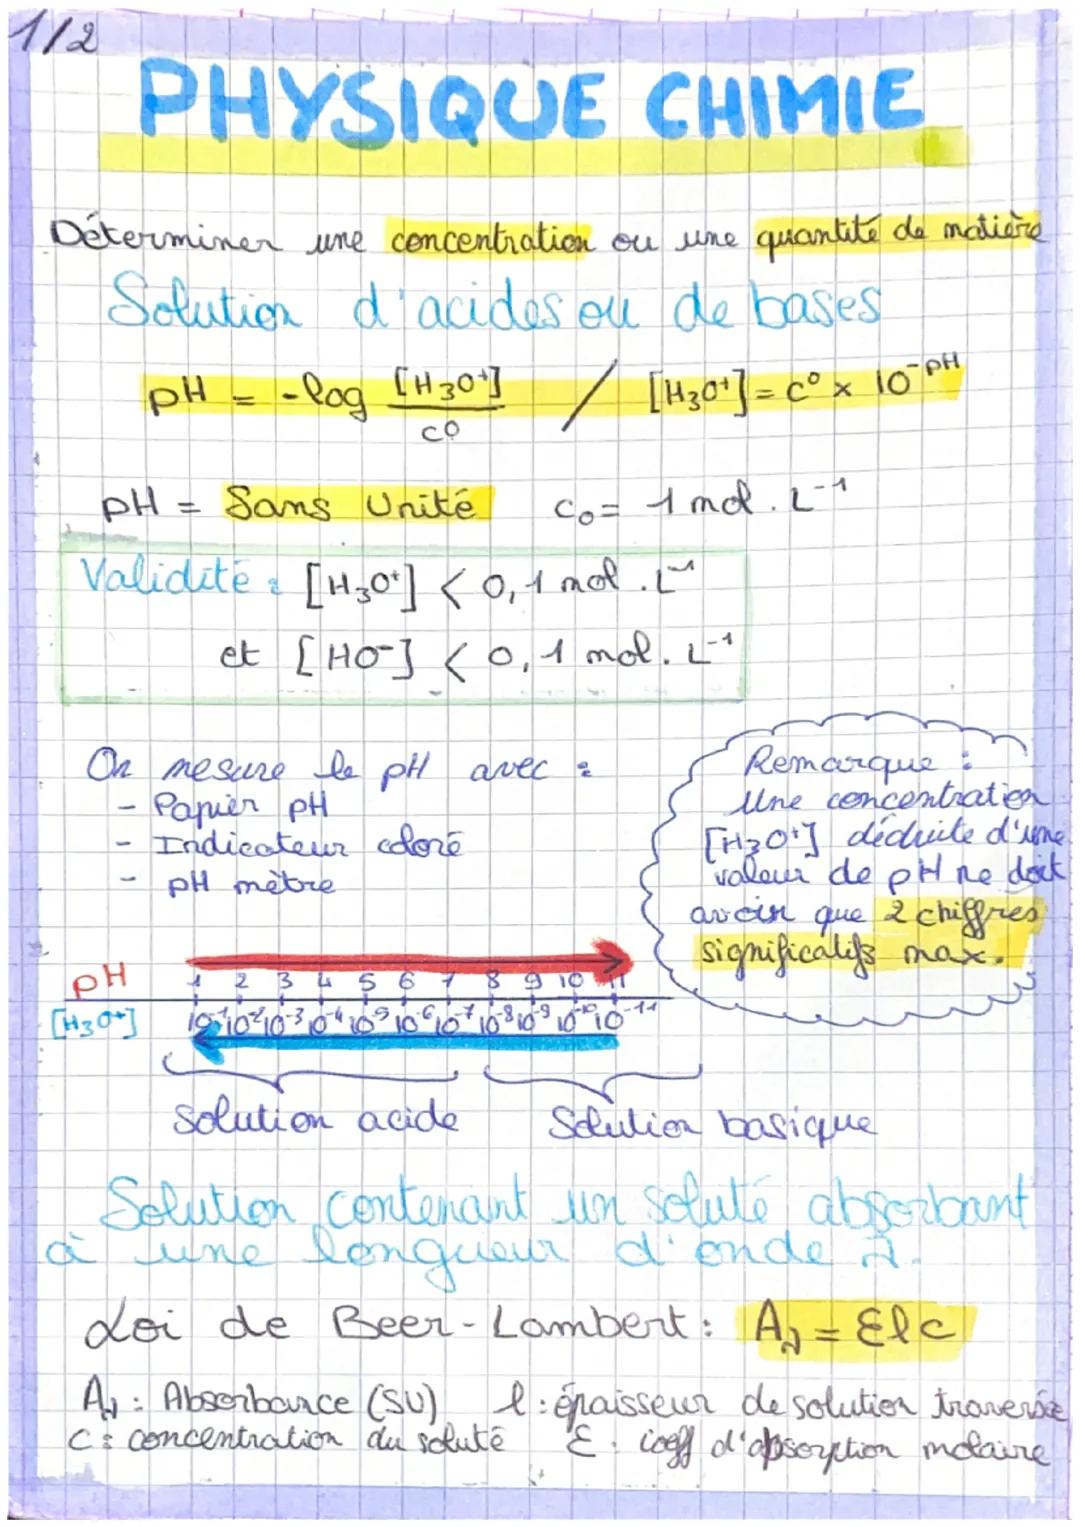 1/2
PHYSIQUE CHIMIE
Déterminer une concentration ou une quantité de matière
Solution d'acides ou de bases
pH = -log [H3O+]/c° / [H3O+] = c° x 10^-pH
pH = Sans Unité c0 = 1 mol.L-1
Validité : [H3O+] < 0,1 mol.L-1
et [HO-] < 0,1 mol.L-1
On mesure le pH avec :
- Papier pH
- Indicateur coloré
- pH mètre
Remarque :
Une concentration
[H3O+] déduite d'une
valeur de pH ne doit
avoir que 2 chiffres
significatifs max.
pH 1 2 3 4 5 6 7 8 9 10 11
[H3O+] 10^-1 10^-2 10^-3 10^-4 10^-5 10^-6 10^-7 10^-8 10^-9 10^-10 10^-11
solution acide Solution basique
Solution contenant un soluté absorbant
à une longueur d'onde λ.
Loi de Beer-Lambert : Aλ = Ɛlc
Aλ : Absorbance (SU) l : épaisseur de solution traversée
C : concentration du soluté Ɛ : coeff d'apsorption molaire